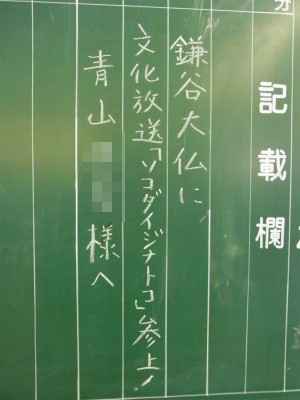 分
記載欄
鎌谷大仏に
文化放送「ソコダイジナトコ」参上!
青山 様へ